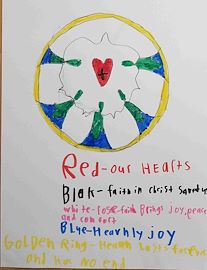 Red-our Hearts
Blak-faith in christ
white-rose-faith Brings joy, peace
and comfort
BLue-Heavnly joy
GOLDEN Ring-Heaven Lasts forever
and Has No end